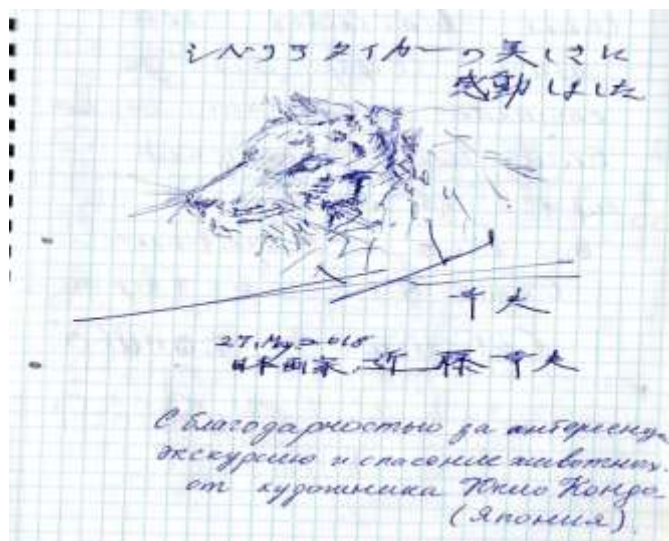 シベリヤタイガーの美しさに
感動しました
幸夫
27, May, 2018
日本画家 近藤幸夫
С благодарностью за интересную
экскурсию и спасение животных
от художника Юкио Кондо
(Япония).